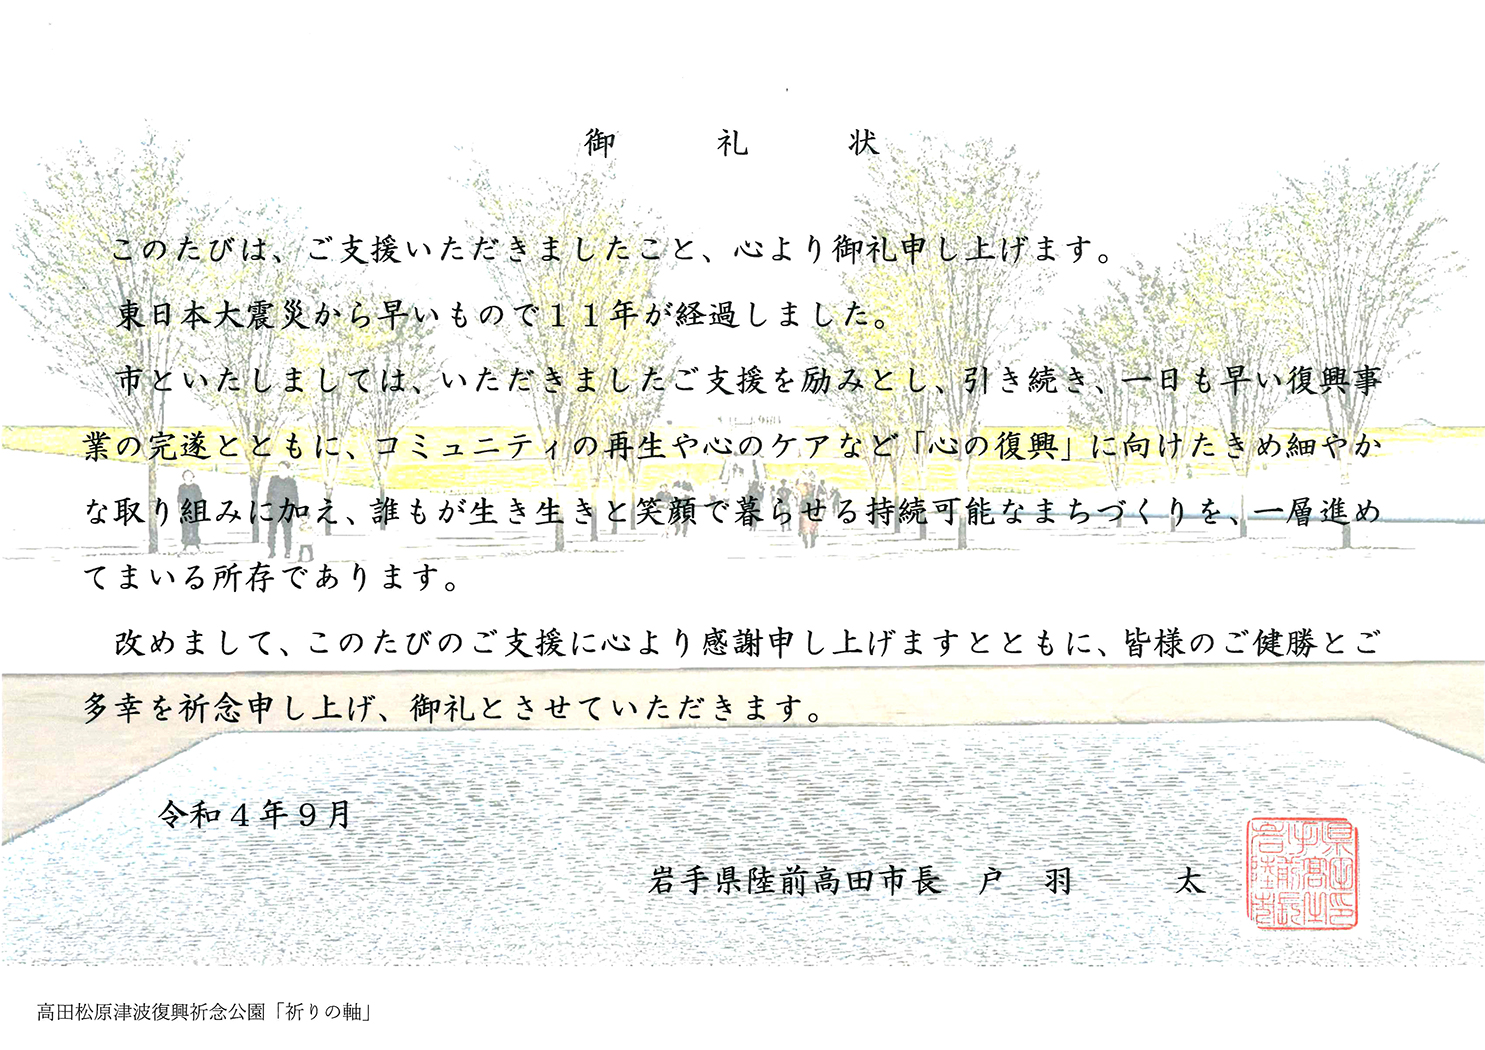 御　礼　状
このたびは、ご支援いただきましたこと、心より御礼申し上げます。
東日本大震災から早いもので１１年が経過しました。
市といたしましては、いただきましたご支援を励みとし、引き続き、一日も早い復興事
業の完遂とともに、コミュニティの再生や心のケアなど「心の復興」に向けたきめ細やか
な取り組みに加え、誰もが生き生きと笑顔で暮らせる持続可能なまちづくりを、一層進め
てまいる所存であります。
改めまして、このたびのご支援に心より感謝申し上げますとともに、皆様のご健勝とご
多幸を祈念申し上げ、御礼とさせていただきます。
令和４年９月
岩手県陸前高田市長　戸　羽　　太
高田松原津波復興祈念公園「祈りの軸」